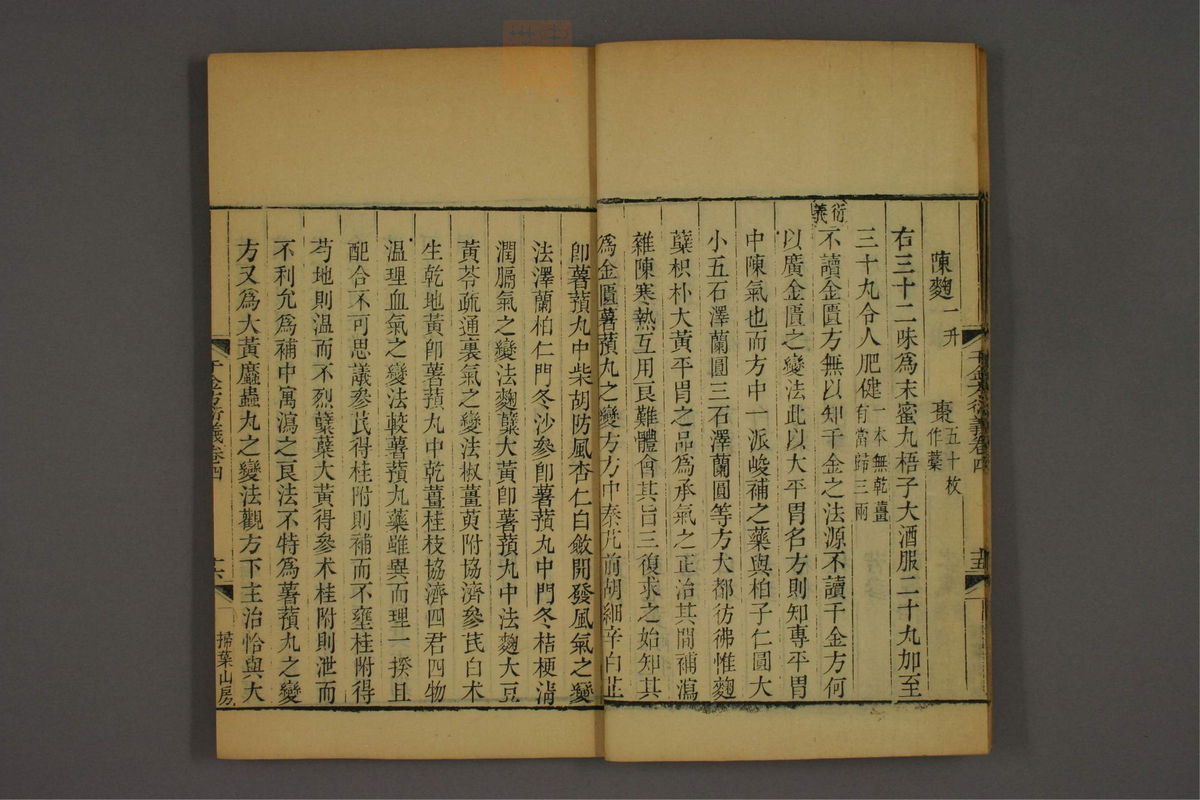 陳麴一升 棗五十枚作藳
右三十二味為末蜜丸梧子大酒服二十九加至
三十九令人肥健一本無乾薑有當歸三兩
衍義
不讀金匱方無以知千金之法源不讀千金方何
以廣金匱之變法此以大平胃名方則知專平胃
中陳氣也而方中一派峻補之藥與柏子仁圓大
小五石澤蘭圓三石澤蘭圓等方大都彷彿惟麴
蘖枳朴大黃平胃之品為承氣之正治其間補瀉
雜陳寒熱互用艮難體會其旨三復求之始知其
為金匱薯蕷丸之變方方中秦艽前胡細辛白芷
千金方衍義卷四
十五
卽薯蕷丸中柴胡防風杏仁白斂開發風氣之變
法澤蘭柏仁門冬沙參卽薯蕷丸中門冬桔梗清
潤膈氣之變法麴蘖大黃卽薯蕷丸中法麴大豆
黃芩疏通裏氣之變法椒薑萸附協濟參芪白术
生乾地黃卽薯蕷丸中乾薑桂枝協濟四君四物
溫理血氣之變法較薯蕷丸藥雖異而理一揆且
配合不可思議參芪得桂附則補而不壅桂附得
芍地則溫而不烈蘖蘖大黃得參术桂附則泄而
不利允為補中寓瀉之良法不特為薯蕷丸之變
方又為大黃䗪蟲丸之變法觀方下主治恰與大
千金方衍義卷四
十六
掃葉山房